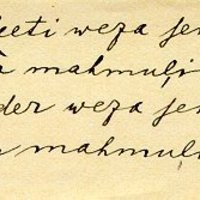 eeti weza je
a mahmuļi
der weza je
mahmuļ